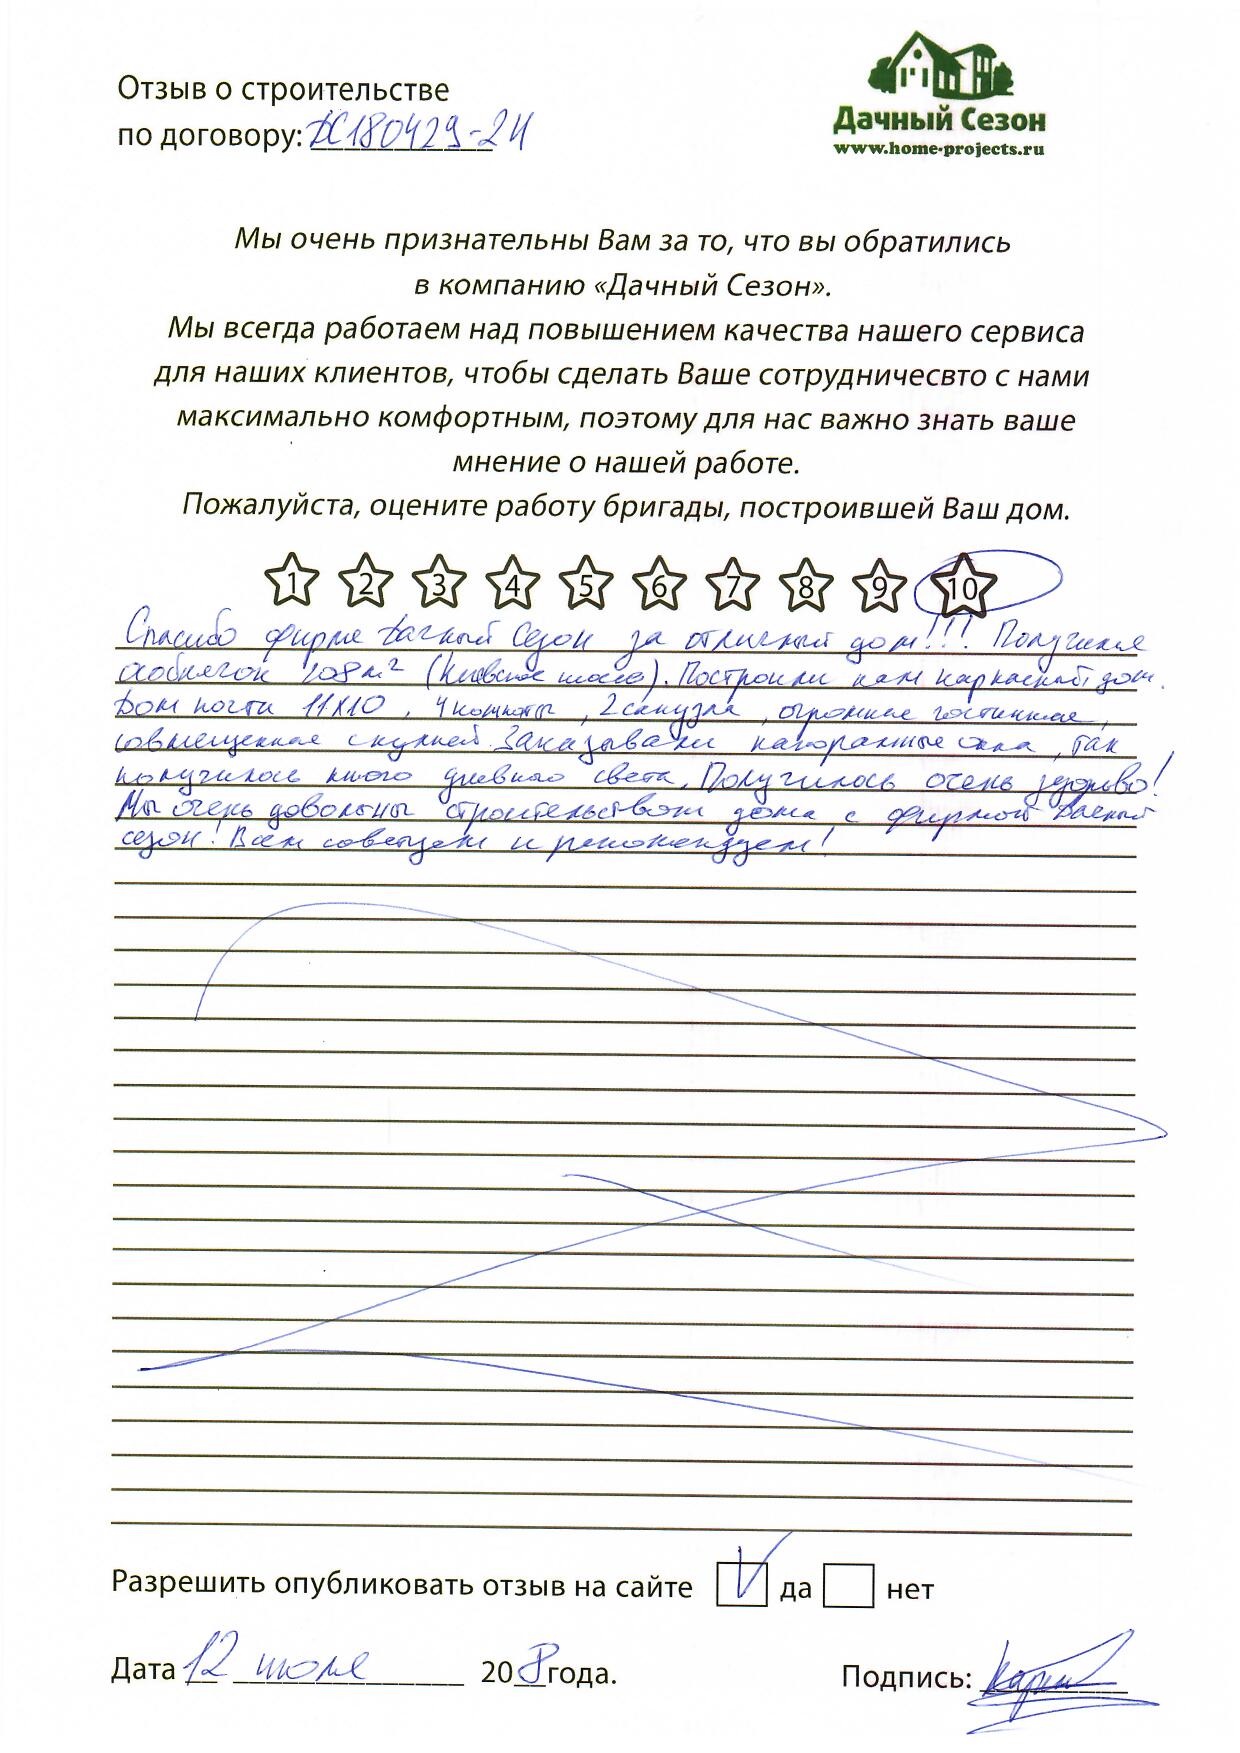 Отзыв о строительстве
по договору: ДС180429-24
Дачный Сезон
www.home-projects.ru
Мы очень признательны Вам за то, что вы обратились
в компанию «Дачный Сезон».
Мы всегда работаем над повышением качества нашего сервиса
для наших клиентов, чтобы сделать Ваше сотрудничесвто с нами
максимально комфортным, поэтому для нас важно знать ваше
мнение о нашей работе.
Пожалуйста, оцените работу бригады, построившей Ваш дом.
1 2 3 4 5 6 7 8 9 10
Спасибо фирме Дачный Сезон за отличный дом!!! Получился
особнячок 108 м² (Киевское шоссе). Построили нам каркасный дом.
Дом почти 11х10, 4 комнаты, 2 санузла, огромная гостинная,
совмещенная с кухней. Заказывали панорамные окна, так
получилось много дневного света. Получилось очень здорово!
Мы очень довольны строительством дома с фирмой Дачный
сезон! Всем советуем и рекомендуем!
Разрешить опубликовать отзыв на сайте V да нет
Дата 12 июля 2018 года.
Подпись: